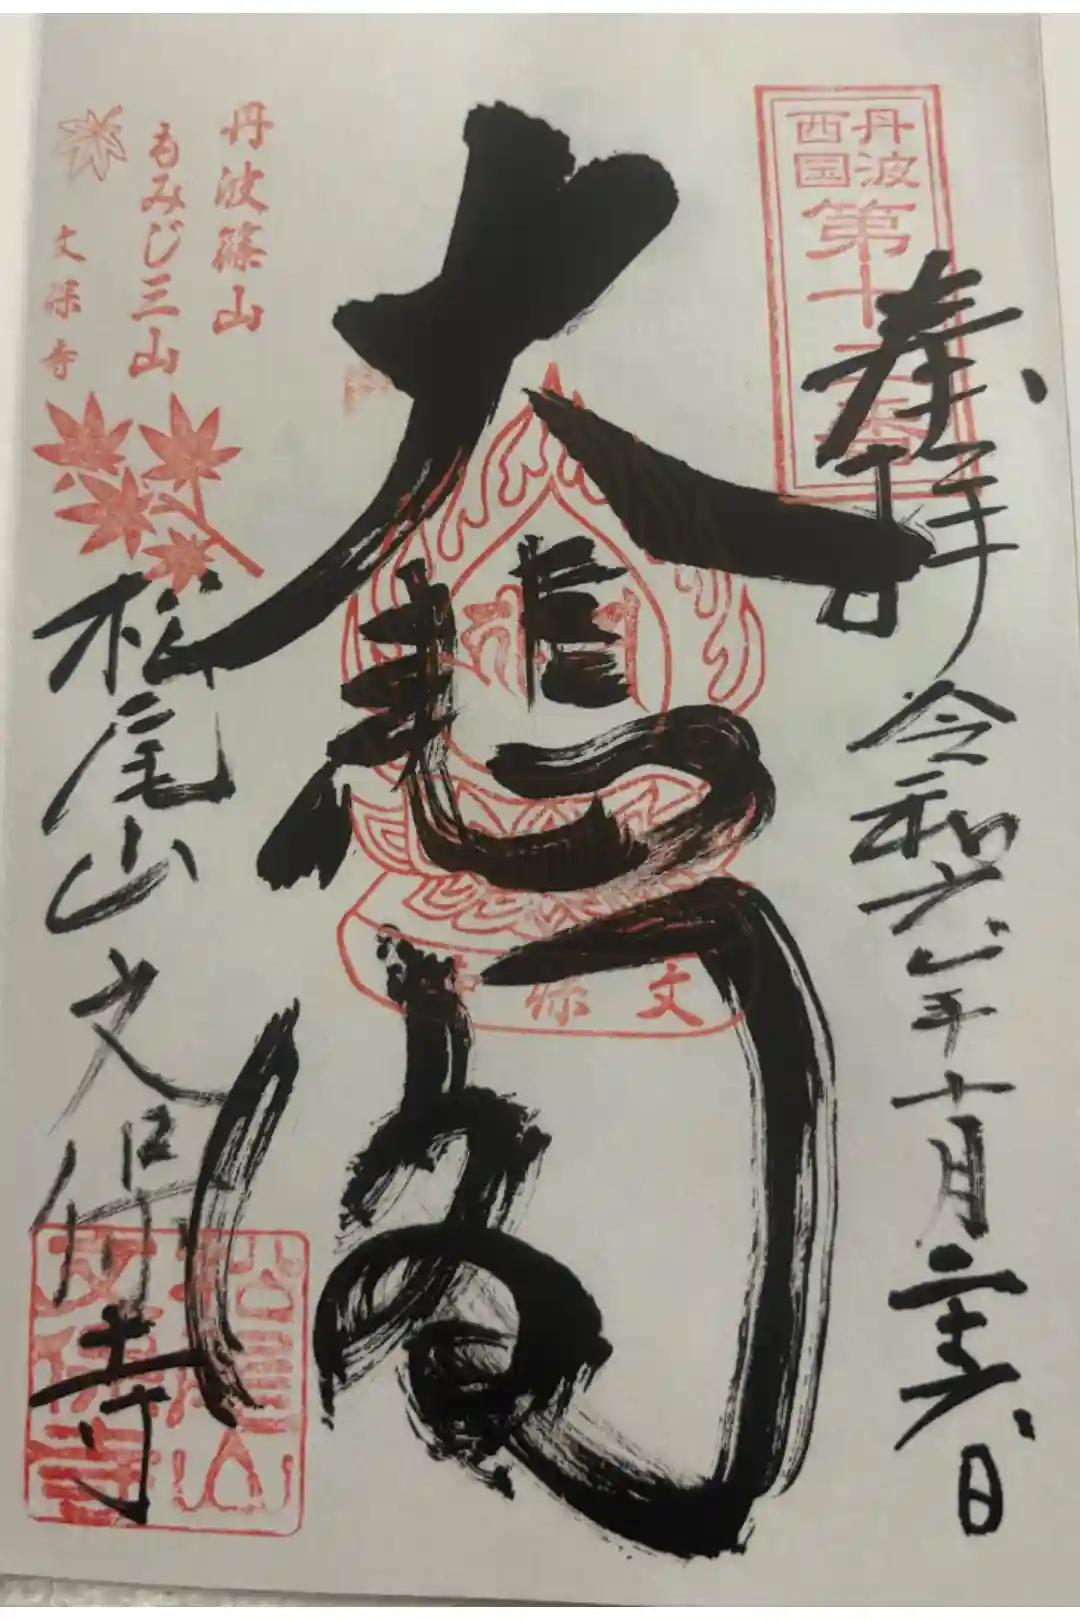 奉拝 令和六年十月二十六日
丹波
西国
第十二番
大悲閣
文保寺
丹波篠山
もみじ三山
文保寺
松尾山 文保寺
松尾山
文保寺